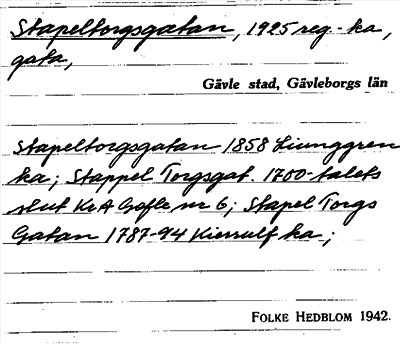 Stapeltorgsgatan, 1925 reg.-ka,
gata,
Gävle stad, Gävleborgs län
Stapeltorgsgatan 1858 Ljunggren
ka; Stappel Torgsgat. 1700-talets
slut KrA Gefle nr 6; Stapel Torgs
Gatan 1787-94 Kierrulf ka;
FOLKE HEDBLOM 1942.